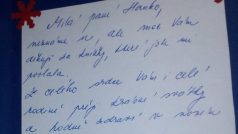 Milá paní Hanko,
neznáme se, ale moc Vám
děkuji za dárky, které jste mi
poslala.
Z celého srdce Vám i celé
rodině přeji krásné svátky
a hodně zdraví v novém